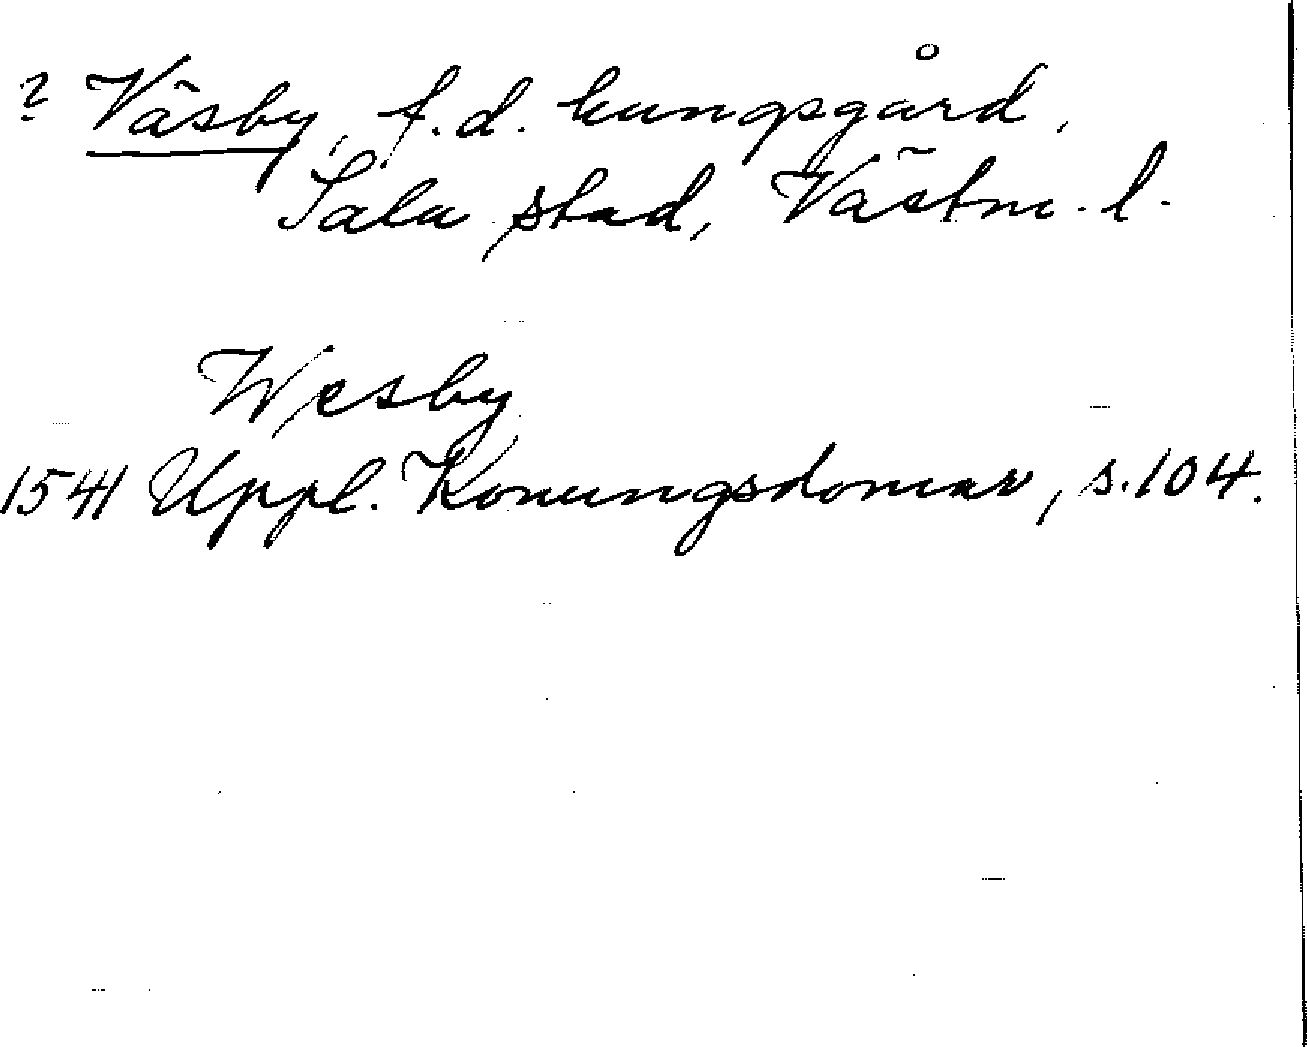 ? Väsby, f.d. kungsgård,
Sala stad, Västm. l.
Wesby
1541 Uppl. Konungsdomar, s. 104.